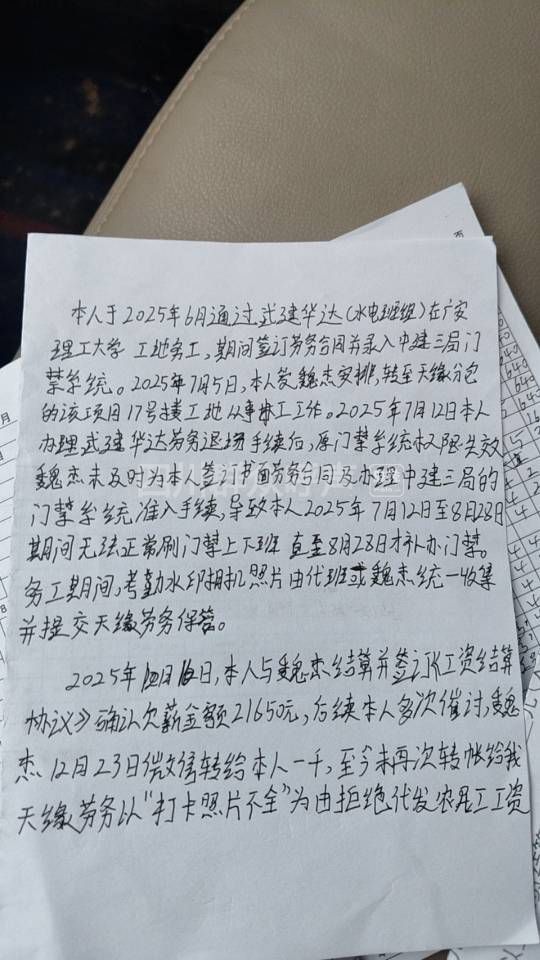 本人于2025年6月通过武建华达(水电班组)在广安
理工大学 工地务工,期间签订劳务合同并录入中建三局门
禁系统。2025年7月5日,本人受魏杰安排,转至天缘分包
的该项目17号楼工地从事木工工作。2025年7月12日本人
办理武建华达劳务退场手续后,原门禁系统权限失效
魏杰未及时为本人签订书面劳务合同及办理中建三局的
门禁系统准入手续,导致本人2025年7月12日至8月28日
期间无法正常刷门禁上下班 直至8月28日才补办门禁。
务工期间,考勤水印相机照片由代班或魏杰统一收集
并提交天缘劳务保管。
2025年 月 日,本人与魏杰结算并签订《工资结算
协议》确认欠薪金额21650元,后续本人多次催讨,魏
杰12月23日微信转给本人一千,至今未再次转帐给我
天缘劳务以“打卡照片不全”为由拒绝代发农民工工资